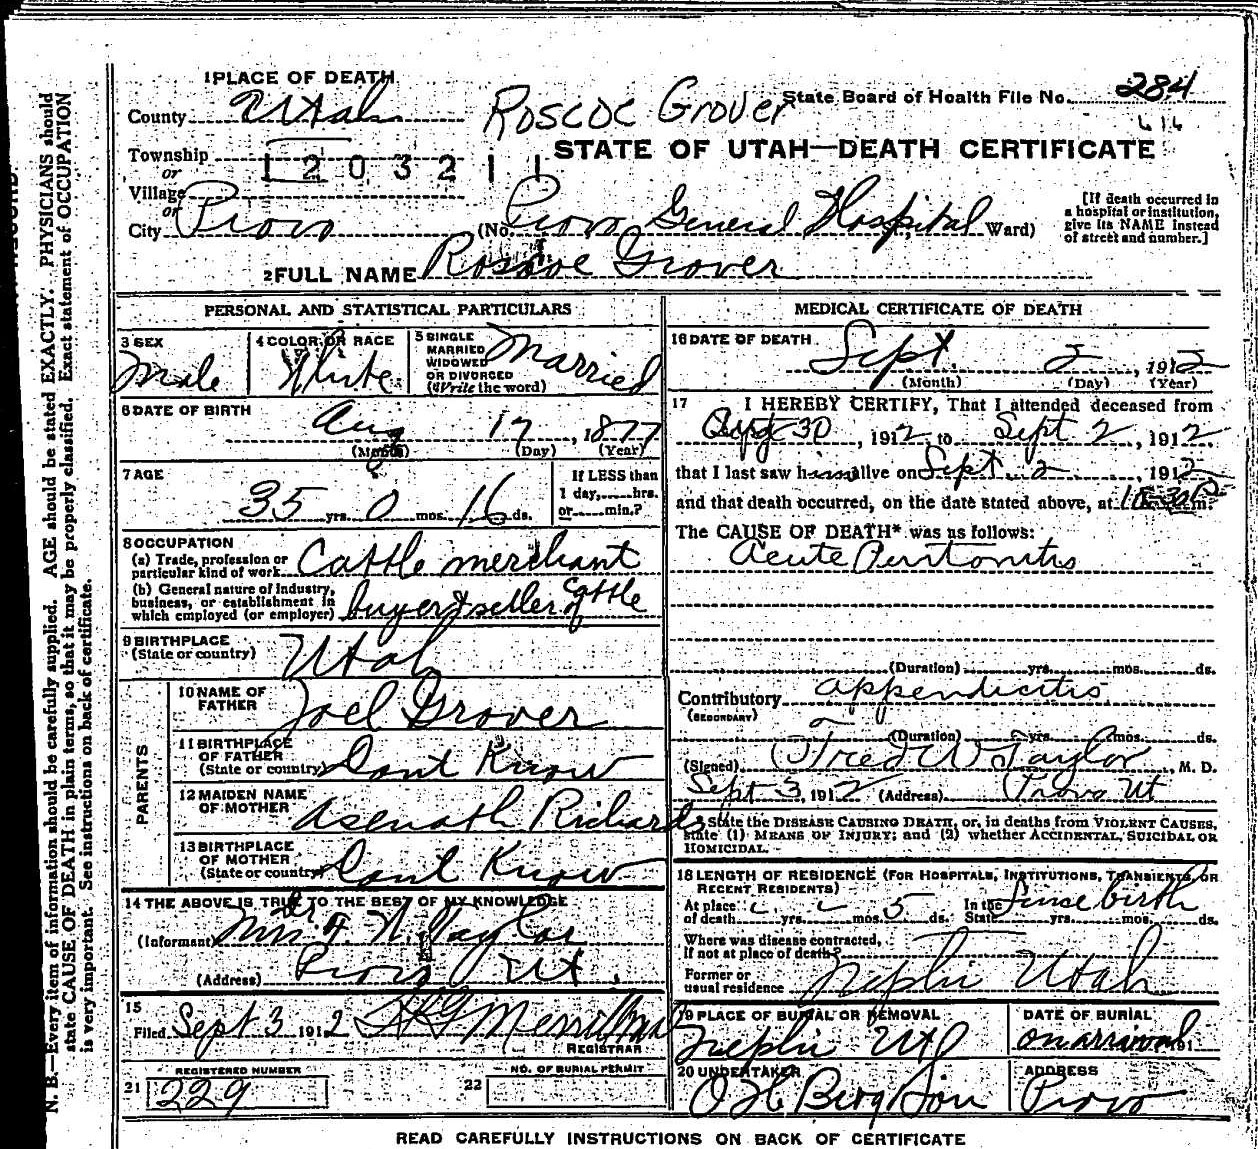 1 PLACE OF DEATH
County Utah
Roscoe Grover
State Board of Health File No. 284
Township
or
1203211
STATE OF UTAH—DEATH CERTIFICATE
Village
or
City Provo (No. Provo General Hospital Ward)
[If death occurred in
a hospital or institution,
give its NAME instead
of street and number.]
2 FULL NAME Roscoe Grover
PERSONAL AND STATISTICAL PARTICULARS
3 SEX
Male
4 COLOR OR RACE
White
5 SINGLE
MARRIED
WIDOWED
OR DIVORCED
(Write the word)
Married
6 DATE OF BIRTH
Aug 17, 1877
(Month) (Day) (Year)
7 AGE
35 yrs. 0 mos. 16 ds.
If LESS than
1 day,......hrs.
or......min.?
8 OCCUPATION
(a) Trade, profession or
particular kind of work Cattle merchant
(b) General nature of industry,
business, or establishment in
which employed (or employer) buyer & seller of Cattle
9 BIRTHPLACE
(State or country) Utah
PARENTS
10 NAME OF
FATHER Joel Grover
11 BIRTHPLACE
OF FATHER
(State or country) Dont Know
12 MAIDEN NAME
OF MOTHER Asenath Richards
13 BIRTHPLACE
OF MOTHER
(State or country) Dont Know
14 THE ABOVE IS TRUE TO THE BEST OF MY KNOWLEDGE
(Informant) Mrs Dr F. W. Taylor
(Address) Provo Ut.
15
Filed Sept 3 1912
REGISTRAR
REGISTERED NUMBER
21 229
NO. OF BURIAL PERMIT
22
MEDICAL CERTIFICATE OF DEATH
16 DATE OF DEATH
Sept 2, 1912
(Month) (Day) (Year)
17 I HEREBY CERTIFY, That I attended deceased from
30, 1912, to Sept 2, 1912,
that I last saw him alive on Sept 2, 1912,
and that death occurred, on the date stated above, at m.
The CAUSE OF DEATH* was as follows:
Acute Peritonitis
(Duration) yrs. mos. ds.
Contributory appendicitis
(SECONDARY)
(Duration) yrs. mos. ds.
(Signed) Fred W Taylor, M. D.
Sept 3, 1912 (Address) Provo Ut
State the DISEASE CAUSING DEATH, or, in deaths from VIOLENT CAUSES,
state (1) MEANS OF INJURY; and (2) whether ACCIDENTAL, SUICIDAL OR
HOMICIDAL.
18 LENGTH OF RESIDENCE (FOR HOSPITALS, INSTITUTIONS, TRANSIENTS, OR
RECENT RESIDENTS)
At place
of death yrs. mos. 5 ds. In the
State Since birth yrs. mos. ds.
Where was disease contracted,
if not at place of death?
Former or
usual residence Nephi Utah
19 PLACE OF BURIAL OR REMOVAL
Nephi Ut
DATE OF BURIAL
on arrival 191
20 UNDERTAKER
O H Berg & Son
ADDRESS
Provo
READ CAREFULLY INSTRUCTIONS ON BACK OF CERTIFICATE
N. B.—Every item of information should be carefully supplied. AGE should be stated EXACTLY. PHYSICIANS should
state CAUSE OF DEATH in plain terms, so that it may be properly classified. Exact statement of OCCUPATION
is very important. See instructions on back of certificate.